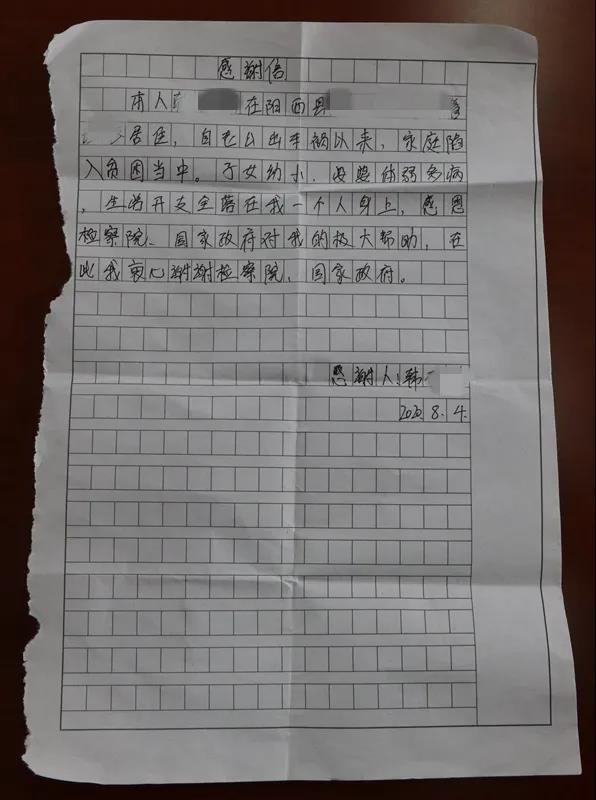 感谢信
本人 在阳西县
居住，自老公出车祸以来，家庭陷
入贫困当中。子女幼小、 体弱多病
，生活开支全落在我一个人身上，感恩
检察院、国家政府对我的极大帮助，在
此我衷心谢谢检察院、国家政府。
感谢人：韩
2020.8.4.